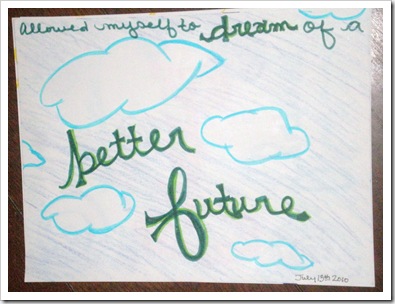 allowed myself to dream of a
better
future
July 13th 2010